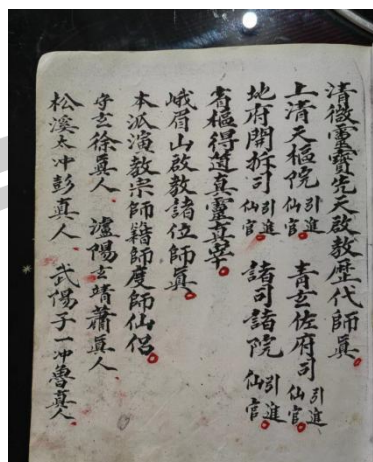 清微靈寳先天啟教歷代師真
上清天樞院引進仙官 青玄佐府司引進仙官
地府開拆司引進仙官 諸司諸院引進仙官
雷樞得道真靈真宰
峨眉山啟教諸位師真
本派演教宗師籍師度師仙侶
守玄徐真人 瀘陽玄靖蕭真人
松溪太冲彭真人 武陽子一冲魯真人